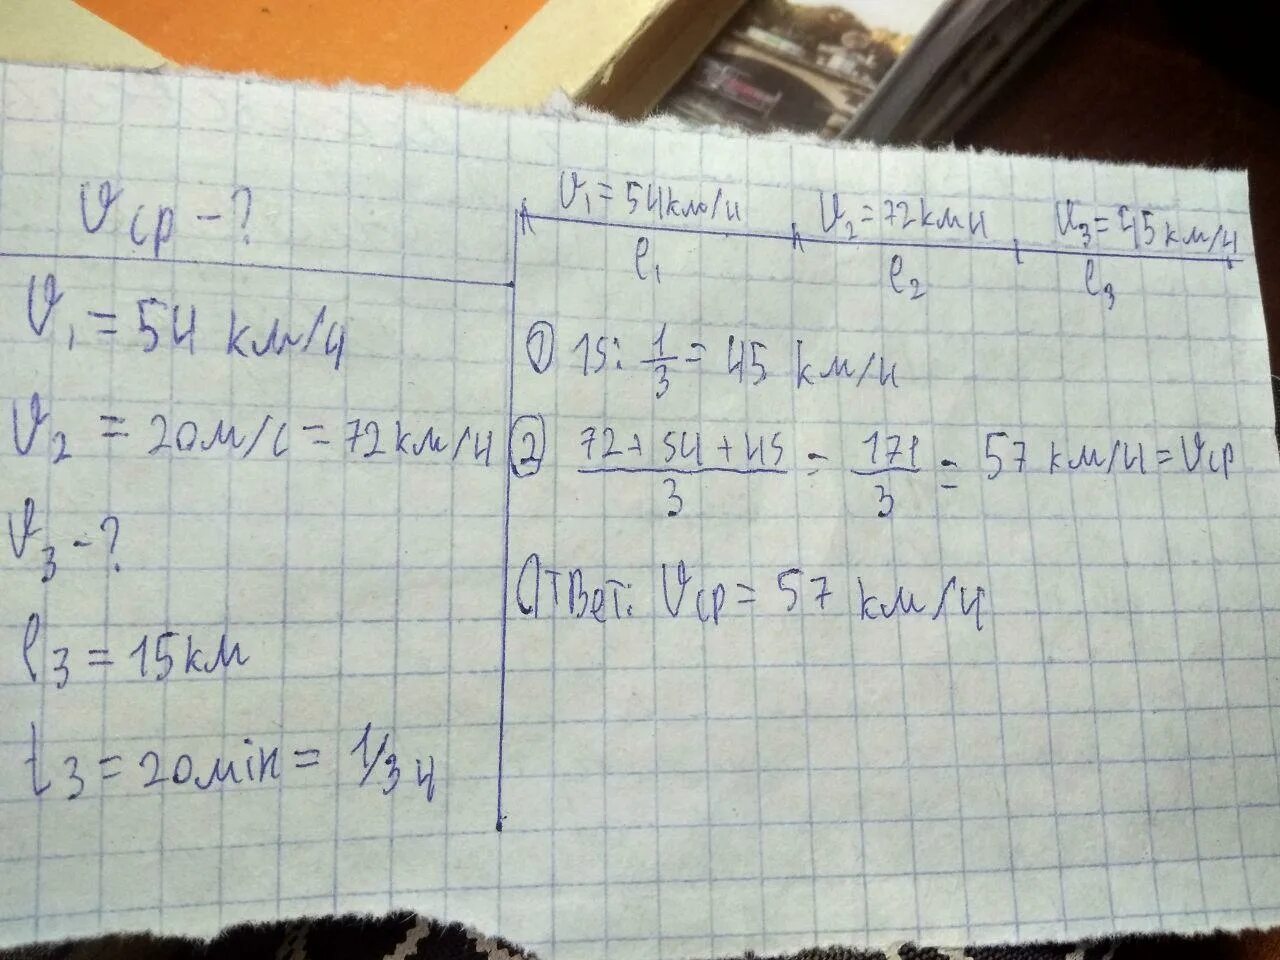 Vср - ?
V₁ = 54 км/ч
V₂ = 20м/с = 72км/ч
V₃ - ?
l₃ = 15км
t₃ = 20мін = 1/3 ч
V₁ = 54км/ч V₂ = 72кмч V₃ = 45км/ч
l₁ l₂ l₃
① 15 : 1/3 = 45 км/ч
② (72 + 54 + 45)/3 = 171/3 = 57 км/ч = Vср
Ответ: Vср = 57 км/ч